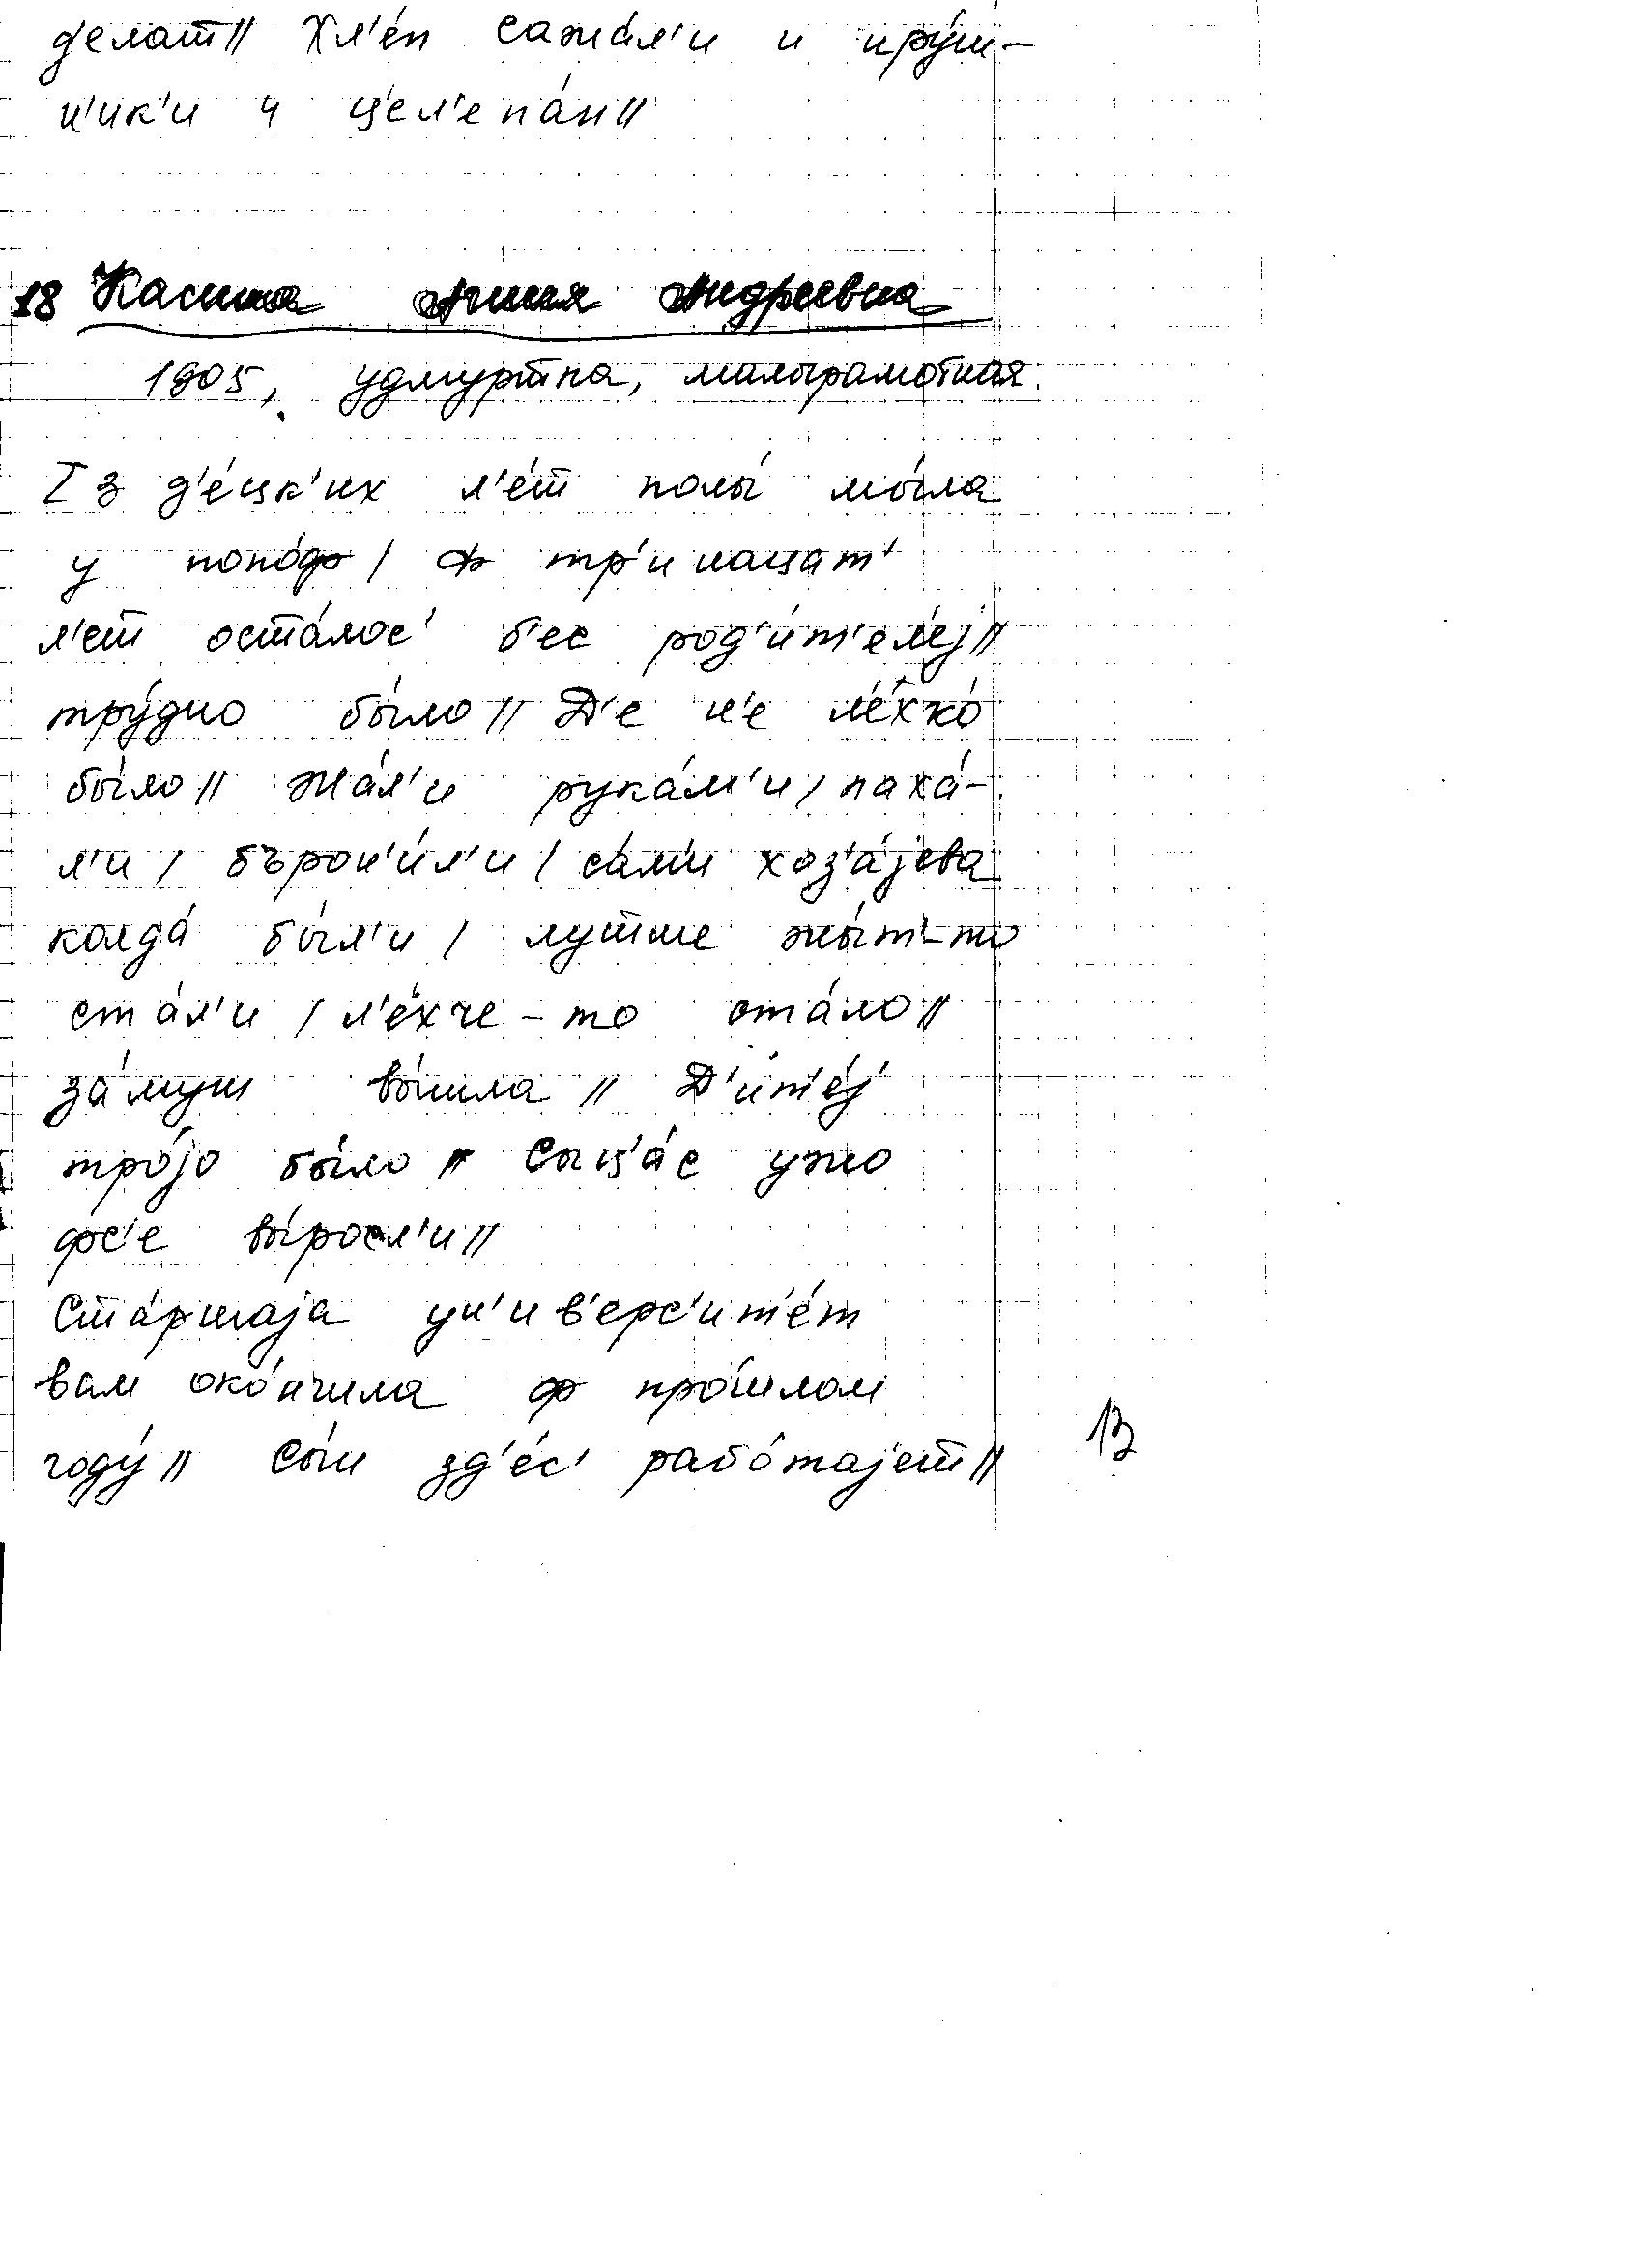 д'елат// Хл'е́п сажа́л'и и иру́ш-
н'ик'и и ц'ел'епа́н//
18 Касимова Андреевна
1905, удмуртка, малограмотная.
I з д'е́цк'их л'е́т полы́ мы́ла
у попо́ф / ф тр'инацат'
л'ет оста́лос' б'ес род'и́т'ел'еj//
тру́дно бы́ло// Д'е н'е л'е́хко́
бы́ло// Жа́л'и рука́м'и / паха́-
л'и / бърон'и́л'и / са́м'и хоз'а́jева
колда́ бы́л'и / лутше жы́т'-то
ста́л'и / л'е́хче-то ста́ло//
за́муш вы́шла // Д'ит'е́j
тро́jо бы́ло // Сыц'а́с ужо
фс'е вы́росл'и//
Ста́ршаjа ун'ив'ерс'ит'е́т
вам око́нчила ф про́шлом
году́// Сы́н зд'е́с' рабо́таjет//
13